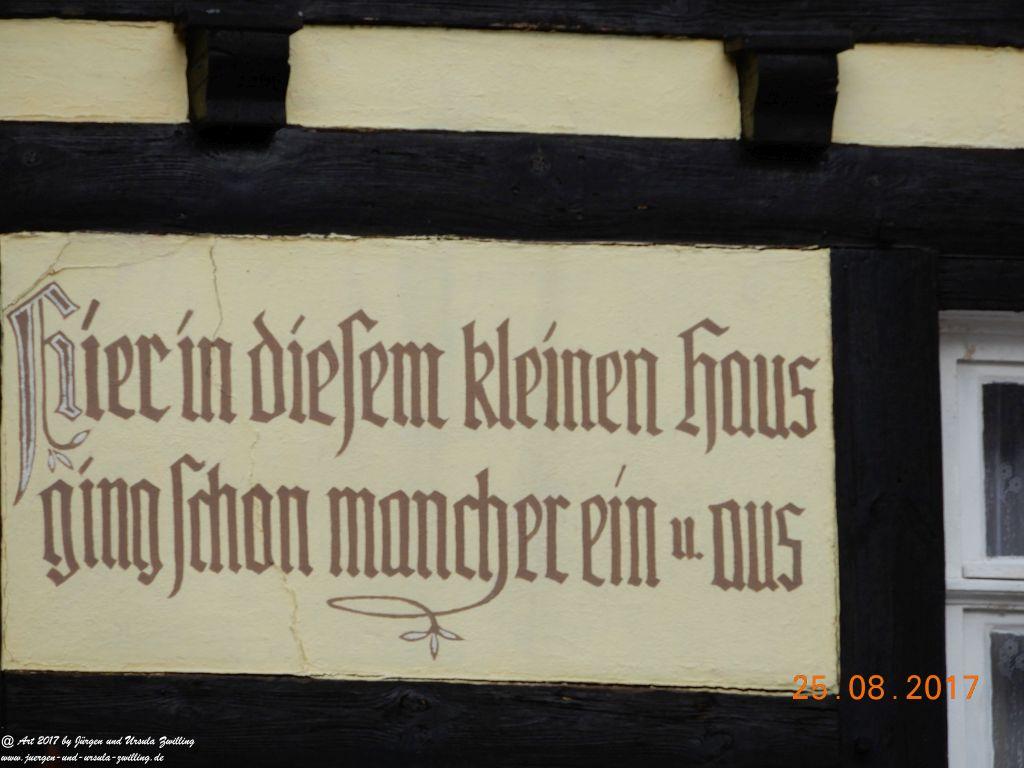 Hier in diesem kleinen Haus
ging schon mancher ein u. aus
25.08.2017
@ Art 2017 by Jürgen und Ursula Zwilling
www.juergen-und-ursula-zwilling.de